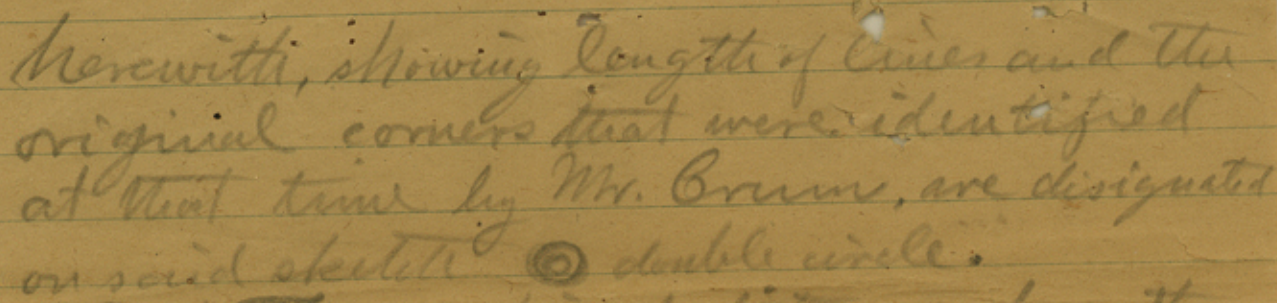 herewith, showing length of lines and the
original corners that were identified
at that time by Mr. Crum, are disignated
on said sketch ◎ double circle.